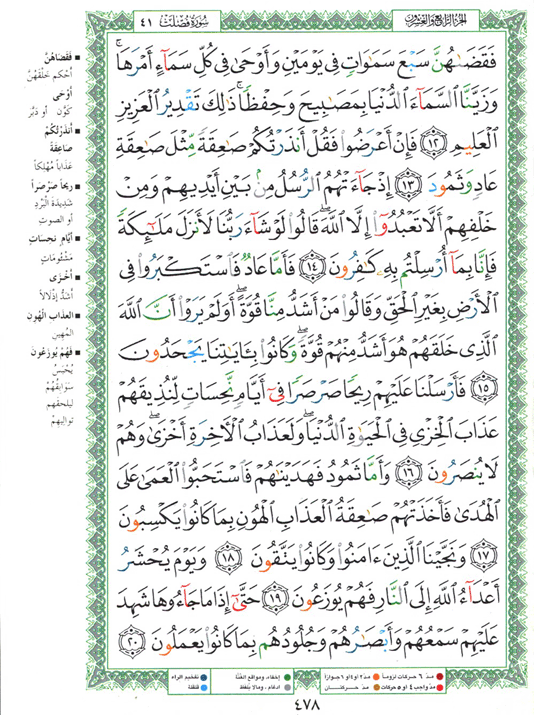 الجزء الرابع والعشرون
سُورَةُ فُصِّلَتْ ٤١
فَقَضَىٰهُنَّ سَبْعَ سَمَٰوَاتٍ فِي يَوْمَيْنِ وَأَوْحَىٰ فِي كُلِّ سَمَآءٍ أَمْرَهَا ۚ
وَزَيَّنَّا ٱلسَّمَآءَ ٱلدُّنْيَا بِمَصَٰبِيحَ وَحِفْظًا ۚ ذَٰلِكَ تَقْدِيرُ ٱلْعَزِيزِ
ٱلْعَلِيمِ ﴿١٢﴾ فَإِنْ أَعْرَضُوا۟ فَقُلْ أَنذَرْتُكُمْ صَٰعِقَةً مِّثْلَ صَٰعِقَةِ
عَادٍ وَثَمُودَ ﴿١٣﴾ إِذْ جَآءَتْهُمُ ٱلرُّسُلُ مِنۢ بَيْنِ أَيْدِيهِمْ وَمِنْ
خَلْفِهِمْ أَلَّا تَعْبُدُوٓا۟ إِلَّا ٱللَّهَ ۖ قَالُوا۟ لَوْ شَآءَ رَبُّنَا لَأَنزَلَ مَلَٰٓئِكَةً
فَإِنَّا بِمَآ أُرْسِلْتُم بِهِۦ كَٰفِرُونَ ﴿١٤﴾ فَأَمَّا عَادٌ فَٱسْتَكْبَرُوا۟ فِي
ٱلْأَرْضِ بِغَيْرِ ٱلْحَقِّ وَقَالُوا۟ مَنْ أَشَدُّ مِنَّا قُوَّةً ۖ أَوَلَمْ يَرَوْا۟ أَنَّ ٱللَّهَ
ٱلَّذِي خَلَقَهُمْ هُوَ أَشَدُّ مِنْهُمْ قُوَّةً ۖ وَكَانُوا۟ بِـَٔايَٰتِنَا يَجْحَدُونَ
﴿١٥﴾ فَأَرْسَلْنَا عَلَيْهِمْ رِيحًا صَرْصَرًا فِيٓ أَيَّامٍ نَّحِسَاتٍ لِّنُذِيقَهُمْ
عَذَابَ ٱلْخِزْيِ فِي ٱلْحَيَوٰةِ ٱلدُّنْيَا ۖ وَلَعَذَابُ ٱلْأَخِرَةِ أَخْزَىٰ ۖ وَهُمْ
لَا يُنصَرُونَ ﴿١٦﴾ وَأَمَّا ثَمُودُ فَهَدَيْنَٰهُمْ فَٱسْتَحَبُّوا۟ ٱلْعَمَىٰ عَلَى
ٱلْهُدَىٰ فَأَخَذَتْهُمْ صَٰعِقَةُ ٱلْعَذَابِ ٱلْهُونِ بِمَا كَانُوا۟ يَكْسِبُونَ
﴿١٧﴾ وَنَجَّيْنَا ٱلَّذِينَ ءَامَنُوا۟ وَكَانُوا۟ يَتَّقُونَ ﴿١٨﴾ وَيَوْمَ يُحْشَرُ
أَعْدَآءُ ٱللَّهِ إِلَى ٱلنَّارِ فَهُمْ يُوزَعُونَ ﴿١٩﴾ حَتَّىٰٓ إِذَا مَا جَآءُوهَا شَهِدَ
عَلَيْهِمْ سَمْعُهُمْ وَأَبْصَٰرُهُمْ وَجُلُودُهُم بِمَا كَانُوا۟ يَعْمَلُونَ ﴿٢٠﴾
■ فَقَضَاهُنَّ
أحكم خَلْقَهُنَّ
■ أَوْحَى
كَوَّن أو دَبَّر
■ أَنْذَرْتُكُمْ
صَاعِقَةً
عَذَاباً مُهْلِكاً
■ رِيحاً صَرْصَراً
شديدَةَ الْبَرْدِ
أو الصوتِ
■ أيّامٍ نَحِساتٍ
مَشْئُومَاتٍ
■ أخْزَى
أشدُّ إذْلالاً
■ العذابِ الهُون
المُهِين
■ فَهُمْ يُوزَعُونَ
يُحْبَسُ
سَوَابِقُهُمْ
ليلحقهم
تواليهمْ
مدّ ٦ حركات لزوماً
مدّ ٢ أو ٤ أو ٦ جوازاً
مدّ واجب ٤ أو ٥ حركات
مدّ حركتان
إخفاء، ومواقع الغُنَّة
ادغام، ومالا يلفظ
تفخيم الراء
قلقلة
٤٧٨